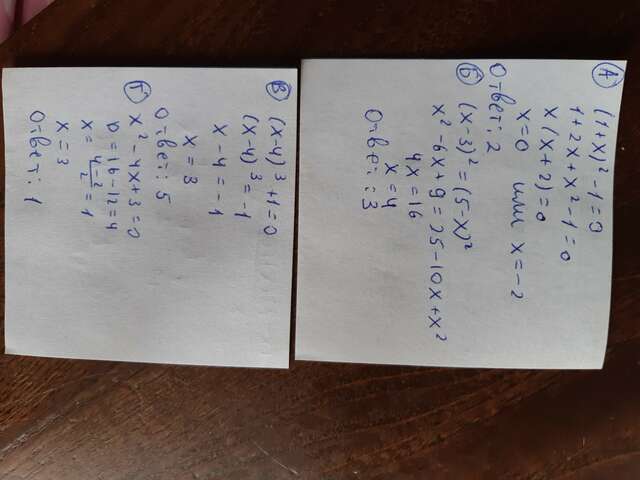 А (1+x)²-1=0
1+2x+x²-1=0
x(x+2)=0
x=0 или x=-2
Ответ: 2
Б (x-3)²=(5-x)²
x²-6x+9=25-10x+x²
4x=16
x=4
Ответ: 3
В (x-4)³+1=0
(x-4)³=-1
x-4=-1
x=3
Ответ: 5
Г x²-4x+3=0
D=16-12=4
x=(4-2)/2=1
x=3
Ответ: 1